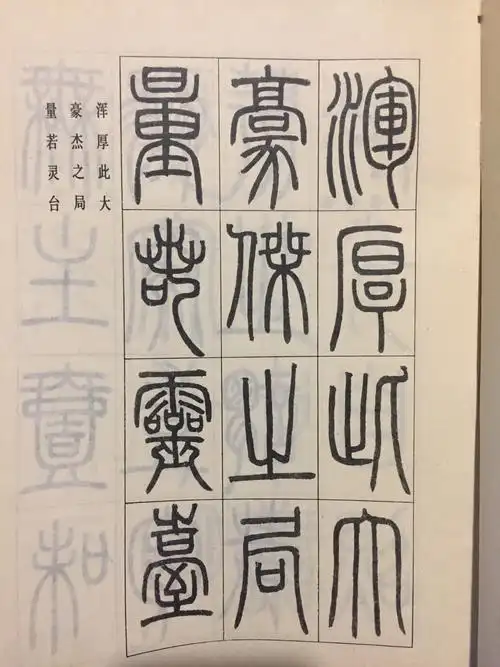 渾厚此大
豪傑之局
量若靈臺
浑厚此大
豪杰之局
量若灵台